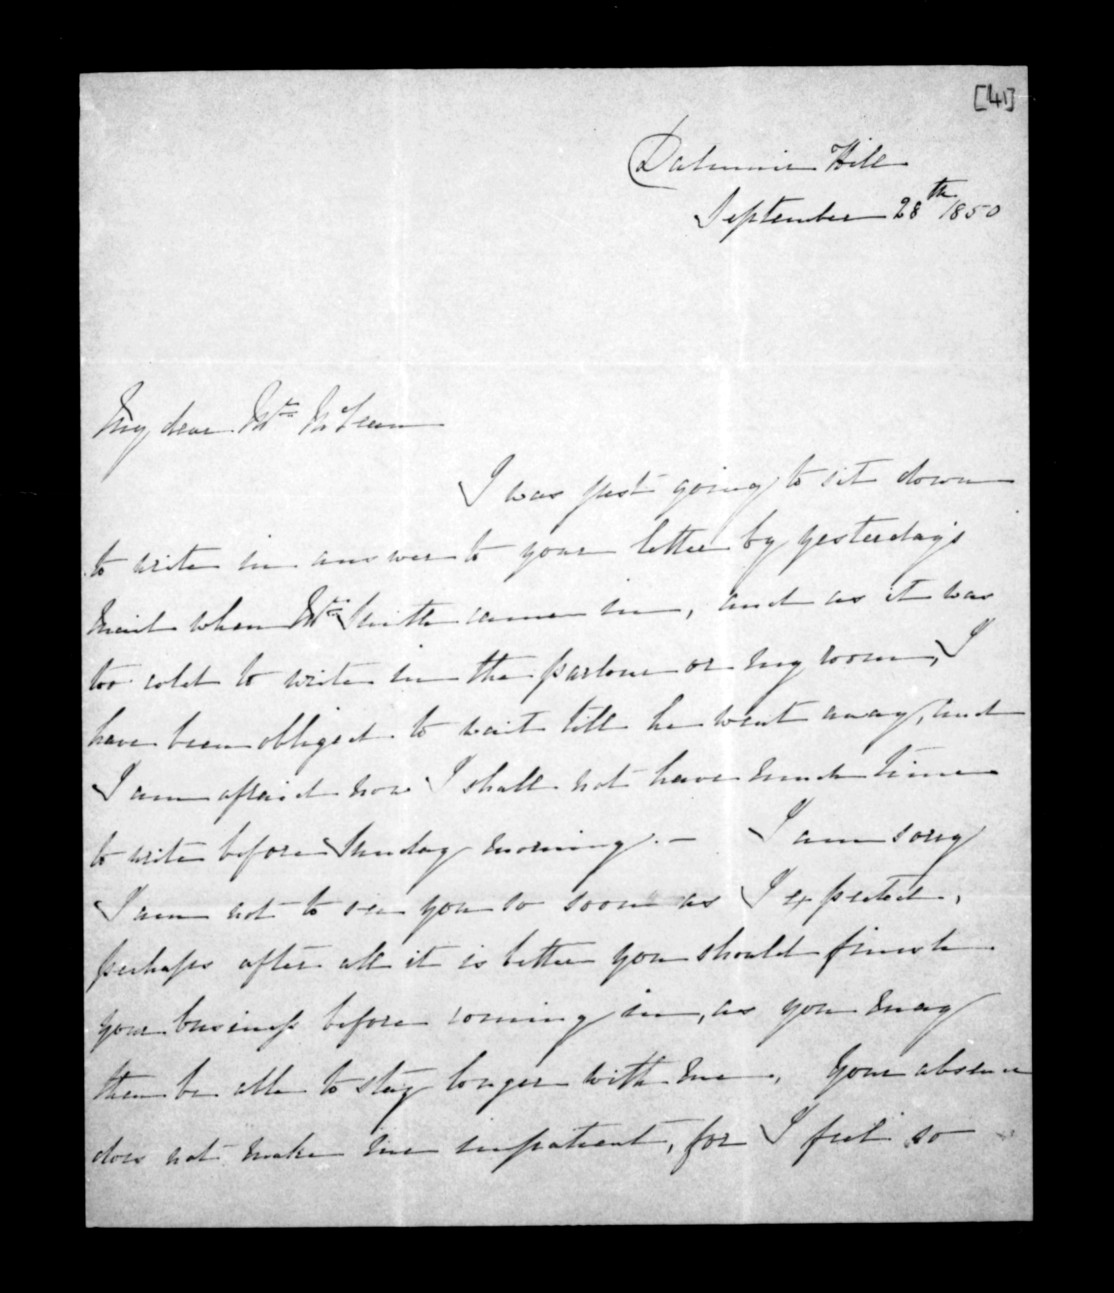 [4]
Dalmuir Hill
September 28th 1850
My dear Mr McLean
I was just going to sit down
to write in answer to your letter by yesterdays
mail when Mr Smith came in, and as it was
too cold to write in the parlour or my room, I
have been obliged to wait till he went away, and
I am afraid now I shall not have much time
to write before Sunday morning. — I am sorry
I am not to see you so soon as I expected,
perhaps after all it is better you should finish
your business before coming in, as you may
then be able to stay longer with me. Your absence
does not make me impatient, for I feel so